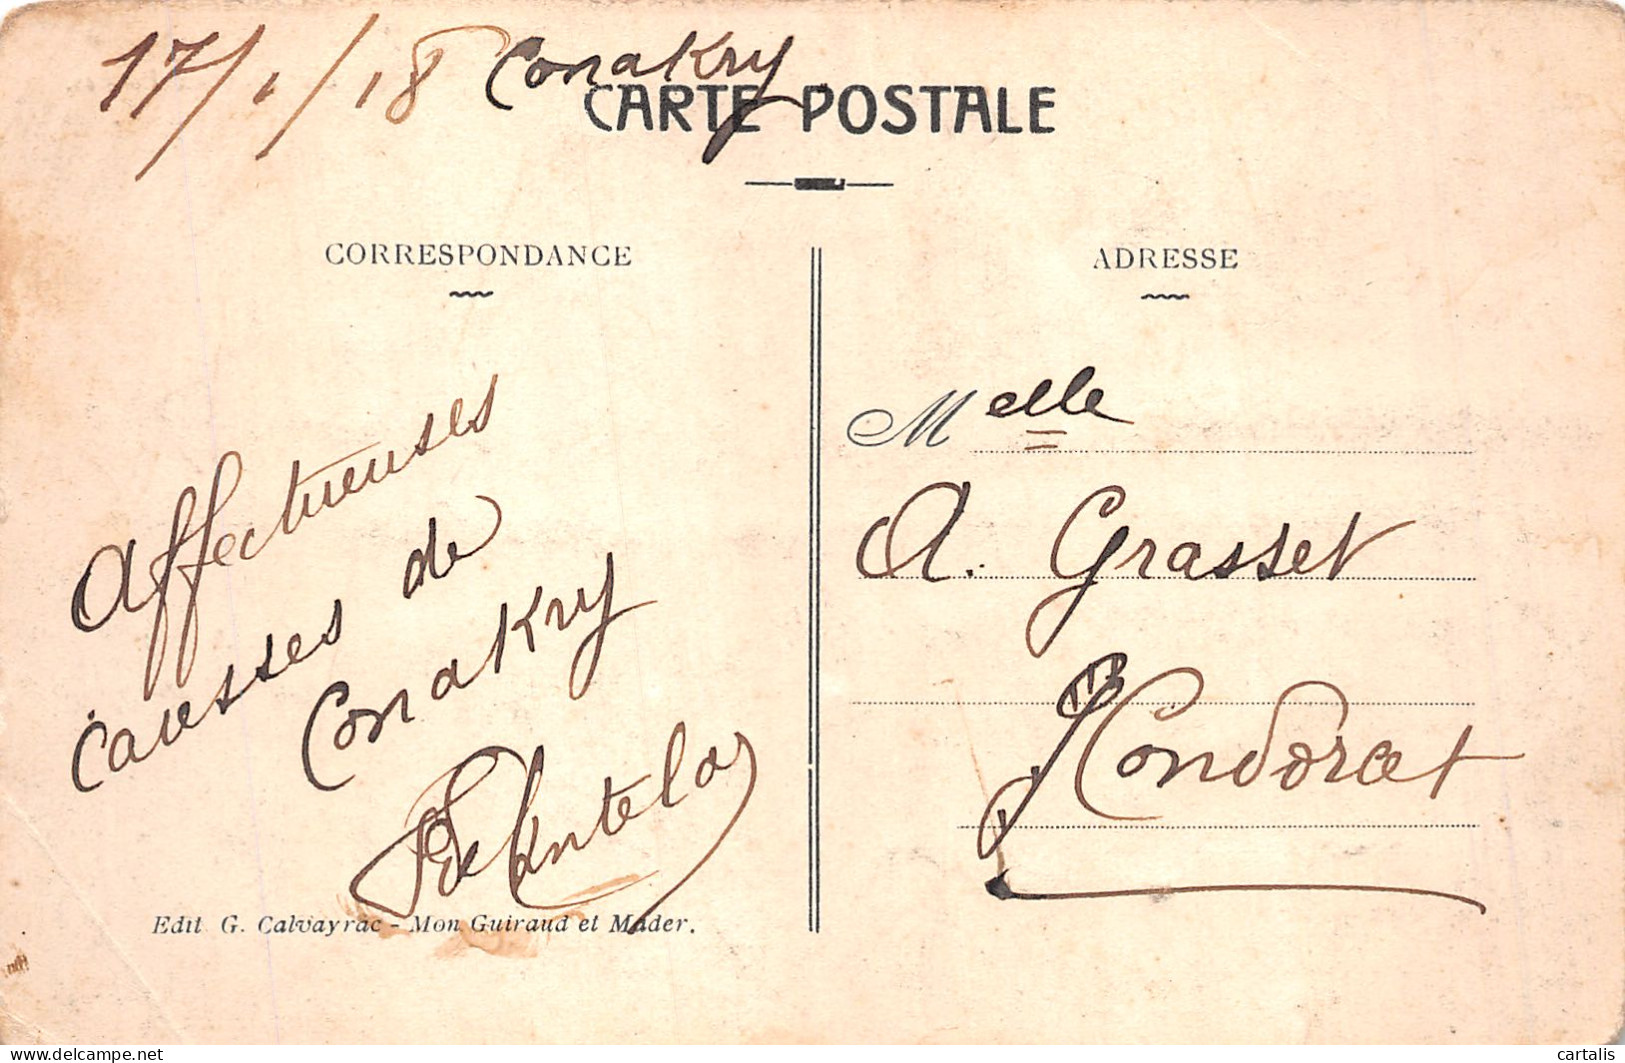 17/1/18 Conakry
CARTE POSTALE
CORRESPONDANCE
ADRESSE
Affectueuses
caresses de
Conakry
Edit G. Calvayrac - Mon Guiraud et Mader.
Melle
A. Grasset
Condorcet
delcampe.net
cartalis